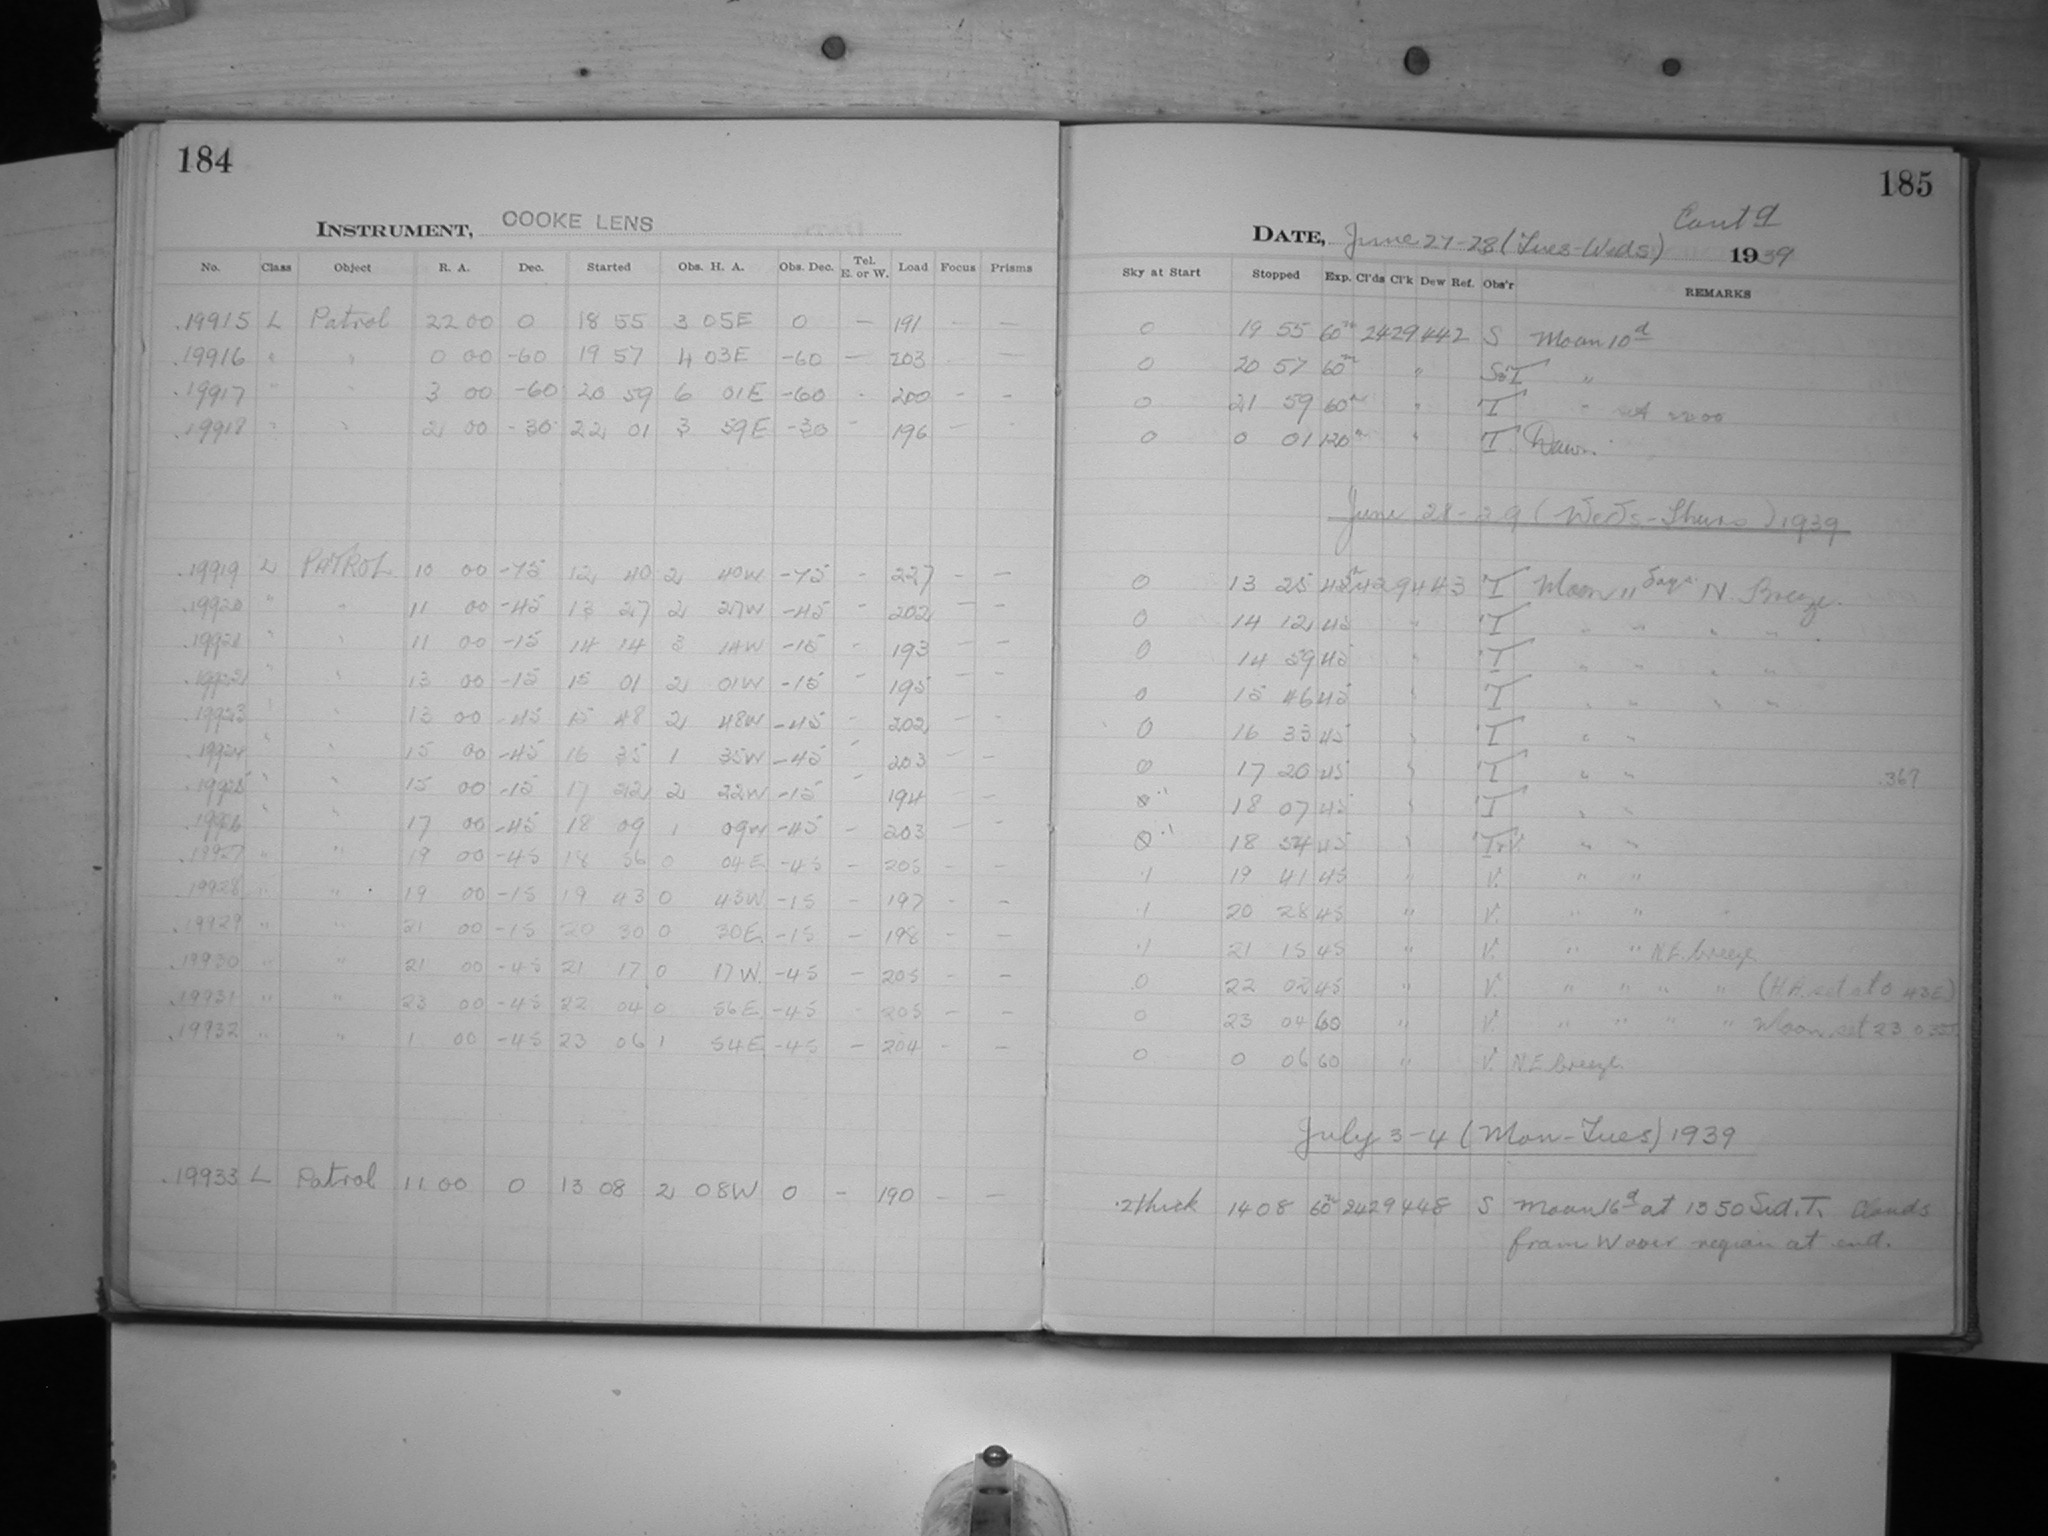 184
INSTRUMENT, COOKE LENS
No. Class Object R. A. Dec. Started Obs. H. A. Obs. Dec. Tel. E. or W. Load Focus Prisms
.19915 L Patrol 22 00 0 18 55 3 05E 0 — 191 - —
.19916 " " 0 00 -60 19 57 4 03E -60 — 203 - —
.19917 " " 3 00 -60 20 59 6 01E -60 - 200 - -
.19918 " " 2 00 -30 22 01 3 59E -30 - 196 - -
.19919 L PATROL 10 00 -75 12 40 2 40W -75 - 227 - —
.19920 " " 11 00 -45 13 27 2 27W -45 - 202 - -
.19921 " " 11 00 -15 14 14 3 14W -15 - 193 - -
.19922 " " 13 00 -15 15 01 2 01W -15 - 195 - -
.19923 " " 13 00 -45 15 48 2 48W -45 - 202 - -
.19924 " " 15 00 -45 16 35 1 35W -45 - 203 - -
.19925 " " 15 00 -15 17 22 2 22W -15 - 194 - -
.19926 " " 17 00 -45 18 09 1 09W -45 - 203 - -
.19927 " " 19 00 -45 18 56 0 04E -45 - 205 - -
.19928 " " 19 00 -15 19 43 0 43W -15 - 197 - -
.19929 " " 21 00 -15 20 30 0 30E -15 - 198 - -
.19930 " " 21 00 -45 21 17 0 17W -45 - 205 - -
.19931 " " 23 00 -45 22 04 0 56E -45 - 205 - -
.19932 " " 1 00 -45 23 06 1 54E -45 - 204 - -
.19933 L Patrol 11 00 0 13 08 2 08W 0 - 190 - -
185
Cont'd
DATE, June 27-28 (Tues-Weds) 1939
Sky at Start Stopped Exp. Cl'ds Cl'k Dew Ref. Obs'r REMARKS
0 19 55 60m 2429442 S Moon 10d
0 20 57 60m " S&T "
0 21 59 60m " T " set 2200
0 0 01 120m " T Dawn.
June 28-29 (Weds-Thurs) 1939
0 13 25 45m 2429443 T Moon 11 days N. Breeze.
0 14 12 45 " T " " " "
0 14 59 45 " T " " " "
0 15 46 45 " T " " " "
0 16 33 45 " T " "
0 17 20 45 " T " " .367
.1 18 07 45 " T " "
.1 18 54 45 " T+V " "
.1 19 41 45 " V. " "
.1 20 28 45 " V. " " "
.1 21 15 45 " V. " " N.E. breeze.
0 22 02 45 " V. " " " " (H.A. set at 0 43E)
0 23 04 60 " V. " " " " Moon set 23 03
0 0 06 60 " V. N.E. breeze.
July 3-4 (Mon-Tues) 1939
.2 thick 14 08 60m 2429448 S Moon 16d at 13 50 Sid. T. Clouds
from W over region at end.